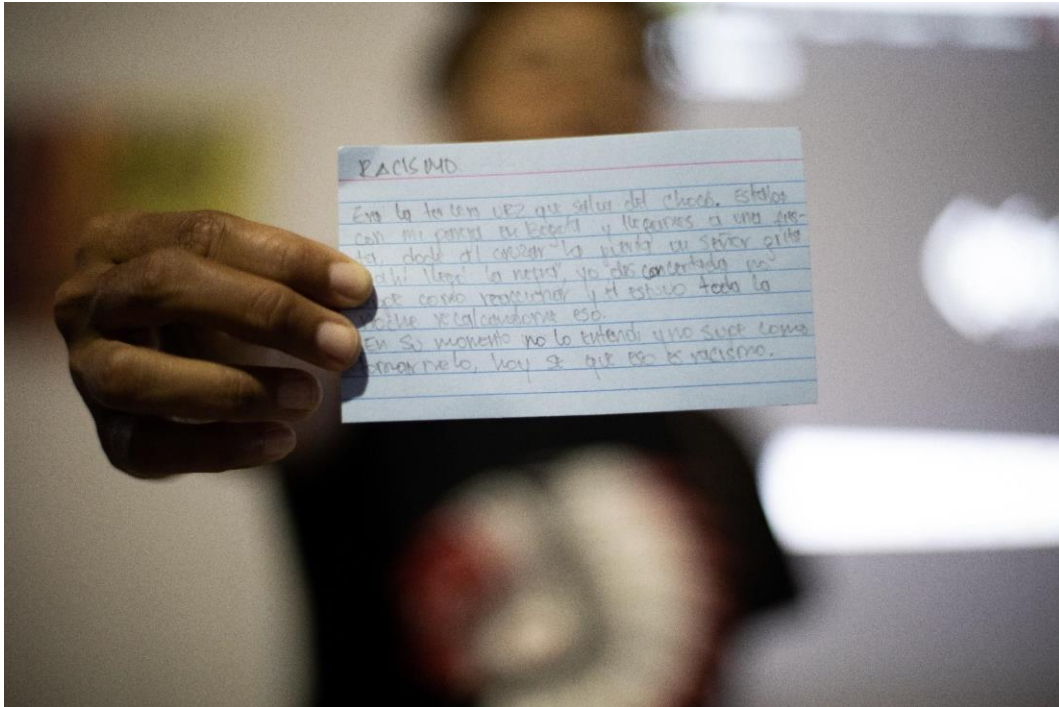 RACISMO
Era la tercera vez que salia del choco. Estaba
con mi pareja en Bogota y llegamos a una fies-
ta, donde al cruzar la puerta un señor grita
ahi llegó la negra", yo desconcertada no
como reaccionar y el estuvo toda la
noche recalcandome eso.
En su momento no lo entendi y no supe como
tomarmelo, hoy se que eso es racismo.